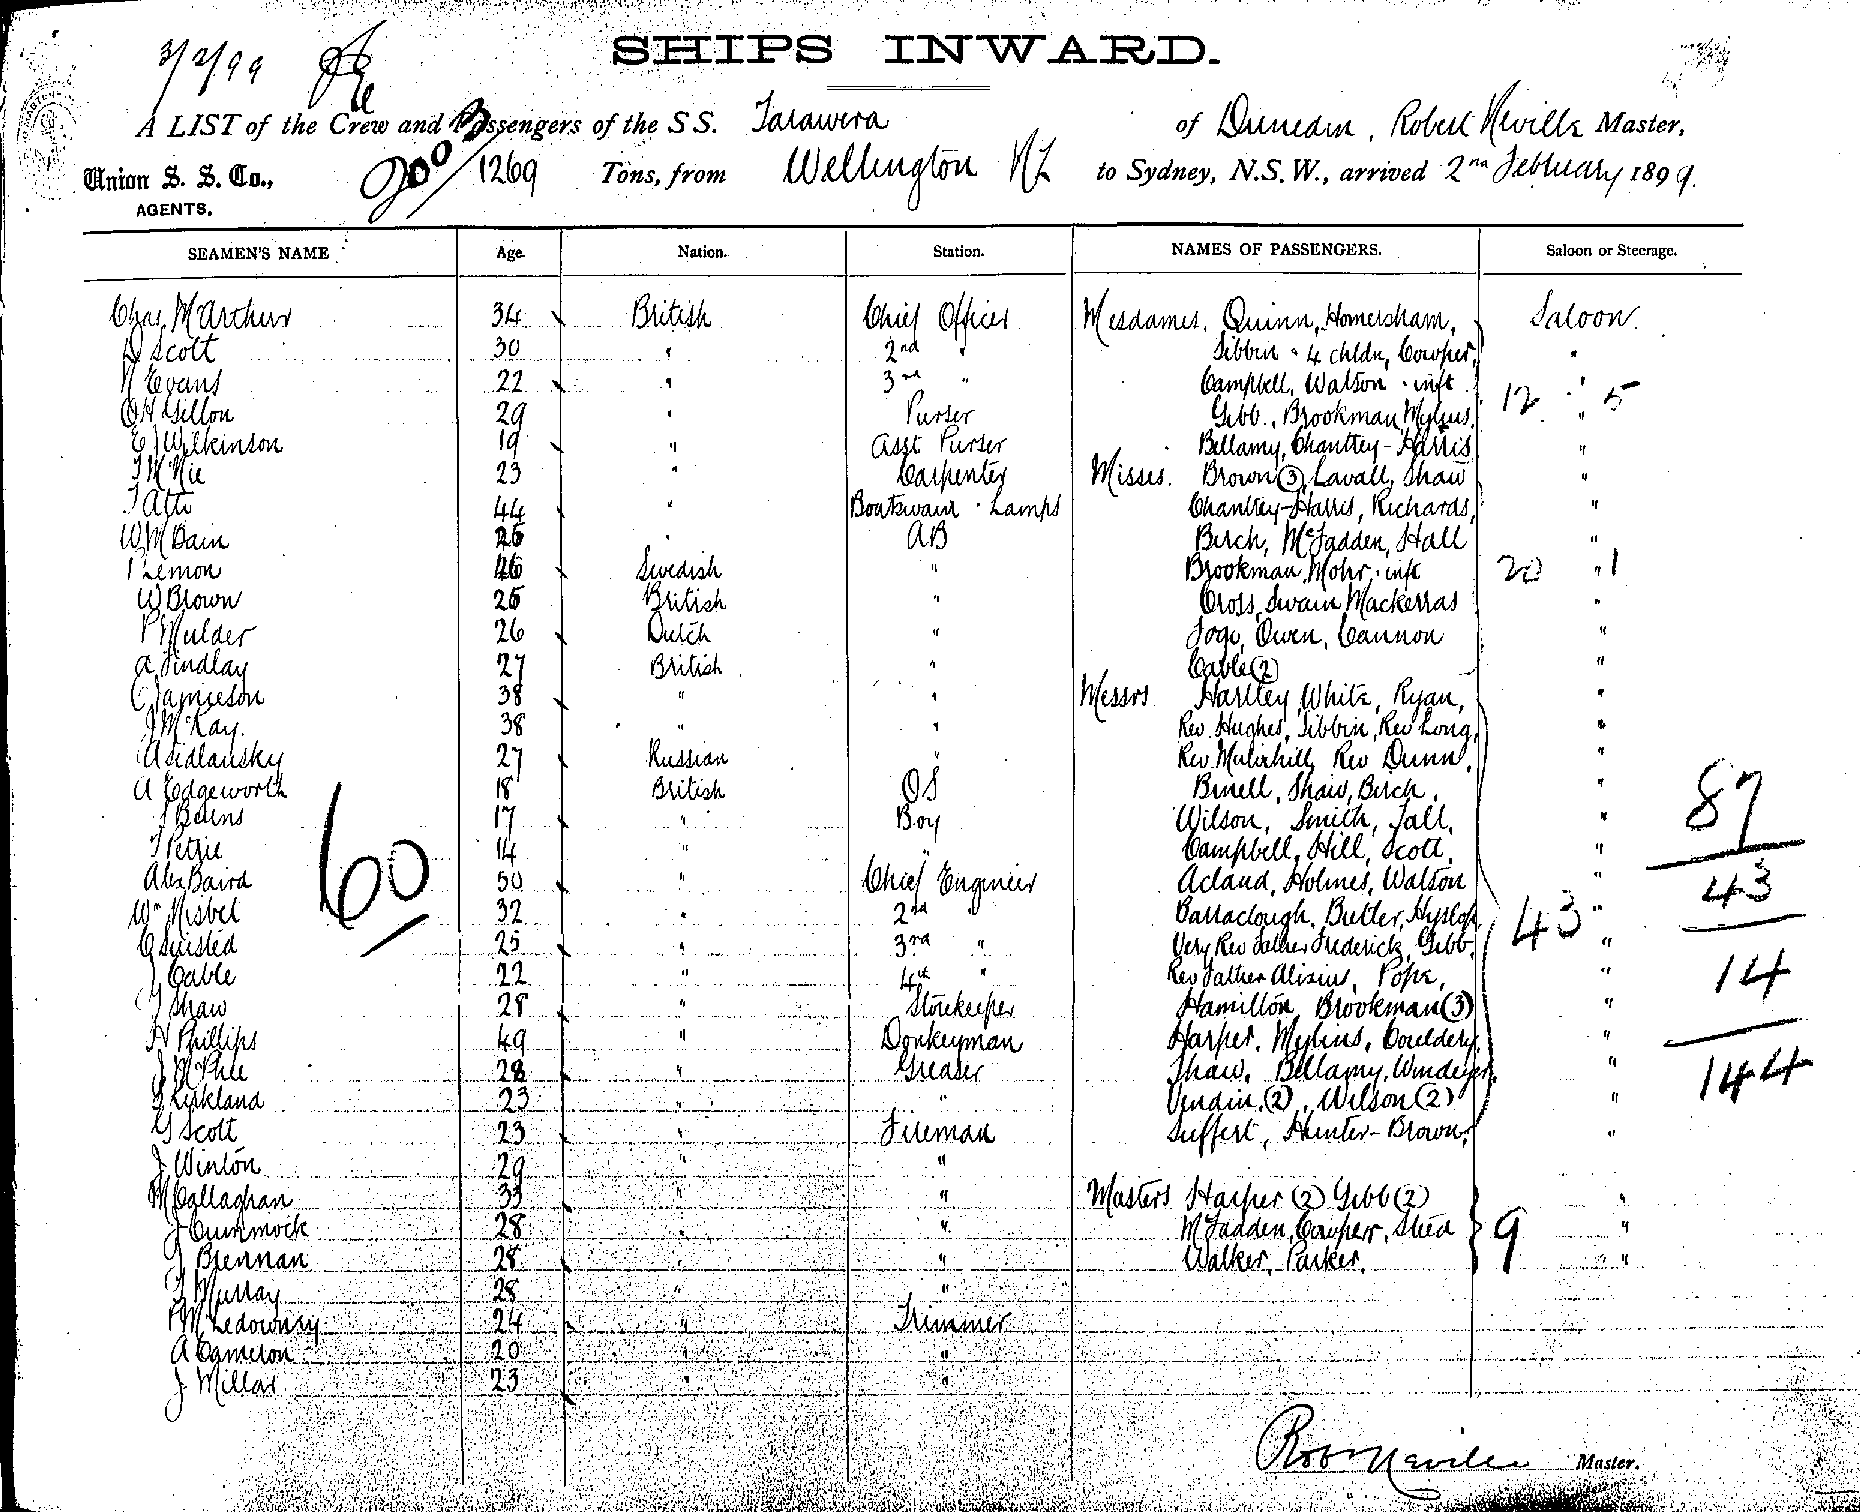 3/2/99
SHIPS INWARD.
A LIST of the Crew and Passengers of the SS. Tarawera of Dunedin, Robert Neville Master,
Union S. S. Co., 1269 Tons, from Wellington NZ to Sydney, N.S.W., arrived 2nd February 1899.
AGENTS.
SEAMEN'S NAME Age. Nation. Station. NAMES OF PASSENGERS. Saloon or Steerage.
Chas McArthur 34 British Chief Officer Mesdames. Quinn, Homersham, Saloon.
D Scott 30 " 2nd " Sibbin & 4 chldn, Cowper, "
N Evans 22 " 3rd " Campbell, Watson & inft "
Gillon 29 " Purser Gibb, Brookman, Mylius, 12 " 5
E J Wilkinson 19 " Asst Purser Bellamy, Chantrey-Harris "
McNie 23 " Carpenter Misses. Brown (3), Lavall, Shaw "
44 " Boatswain & Lamps Chantrey-Harris, Richards, "
W McBain 26 " AB Birch, McFadden, Hall "
Lemon 46 Swedish " Brookman, Mohr & inft 20 " 1
W Brown 25 British " Cross, Swain, Mackerras "
P Mulder 26 Dutch " Owen, Cannon "
A Findlay 27 British " Cable (2) "
C Jamieson 38 " " Messrs Hartley, White, Ryan, "
J McKay. 38 " " Rev Hughes, Sibbin, Rev Long, "
A Sidlansky 27 Russian " Rev Mulvihill, Rev Dunn, "
A Edgeworth 18 British OS Shaw, Birch, "
17 " Boy Wilson, Smith, "
Petrie 14 " " Campbell, Hill, Scott, "
Alex Baird 50 " Chief Engineer Acland, Holmes, Watson "
Wm Nisbet 32 " 2nd " Barraclough, Butler, Hyslop, 43 "
25 " 3rd " Very Rev Father Frederick, Gibb, "
J Cable 22 " 4th " Rev Father Pope, "
Shaw 28 " Storekeeper Hamilton, Brookman (3) "
H Phillips 49 " Donkeyman Harper, Mylius, Couldery, "
J McPhee 28 " Greaser Shaw, Bellamy, Windeyer, "
Kirkland 23 " " (2), Wilson (2) "
G Scott 23 " Fireman Suffert, Hunter-Brown, "
J Winton 29 " "
M Callaghan 33 " " Masters Harper (2) Gibb (2) "
J Cummock 28 " " McFadden, Cowper, 9 "
J Brennan 28 " " Walker, Parker. "
Murray 28 " "
24 " Trimmer
A Cameron 20 " "
J Millar 23 " "
60
87
43
14
144
Master.